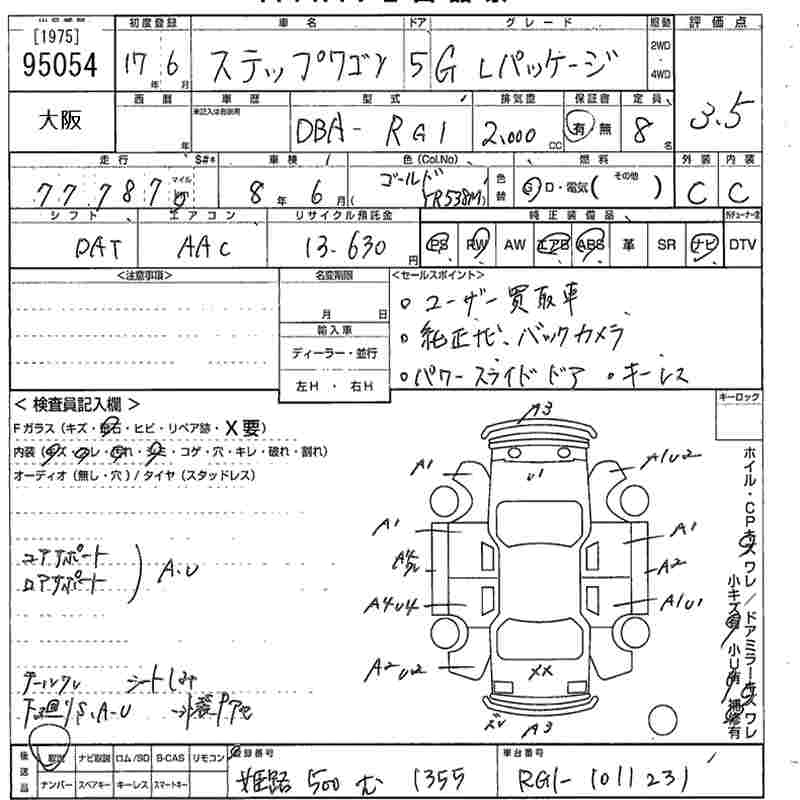 [1975]
95054
大阪
初度登録 車名 ドア グレード 駆動 評価点
17年 6月 ステップワゴン 5 G Lパッケージ 2WD・4WD 3.5
西暦 車歴 型式 排気量 保証書 定員
年 未記入は自家用 DBA- RG1 2,000cc 有・無 8名
走行 S#* 車検 色(Col.No) 燃料 外装 内装
77,787 マイル 8年 6月 ゴールド (YR538M) 色替 G・D・電気( その他 ) C C
シフト エアコン リサイクル預託金 純正装備品
DAT AAC 13,630円 PS PW AW エアB ABS 革 SR ナビ DTV
<注意事項> 名変期限 <セールスポイント>
月 日
輸入車
ディーラー・並行
左H・右H
・ユーザー買取車
・純正ナビ、バックカメラ
・パワースライドドア ・キーレス
<検査員記入欄>
Fガラス(キズ・飛石・ヒビ・リペア跡・X要)
内装(キズ・スレ・汚れ・シミ・コゲ・穴・キレ・破れ・割れ)
オーディオ(無し・穴)/タイヤ(スタッドレス)
キーロック
コアサポート
ロアサポート
A・U
シートしみ
下廻りS、A-U
A3
A1 U1 A1U2
A1 A1
A2
A4U4 A1U1
A2U2 XX
A3
ホイル・CPキズ ワレ/ドアミラーキズ ワレ
小キズ有 小U有 補修有
後送品 取説 ナビ取説 ロム/SD B-CAS リモコン
ナンバー スペアキー キーレス スマートキー
登録番号 車台番号
姫路 500 む 1355 RG1-1011231